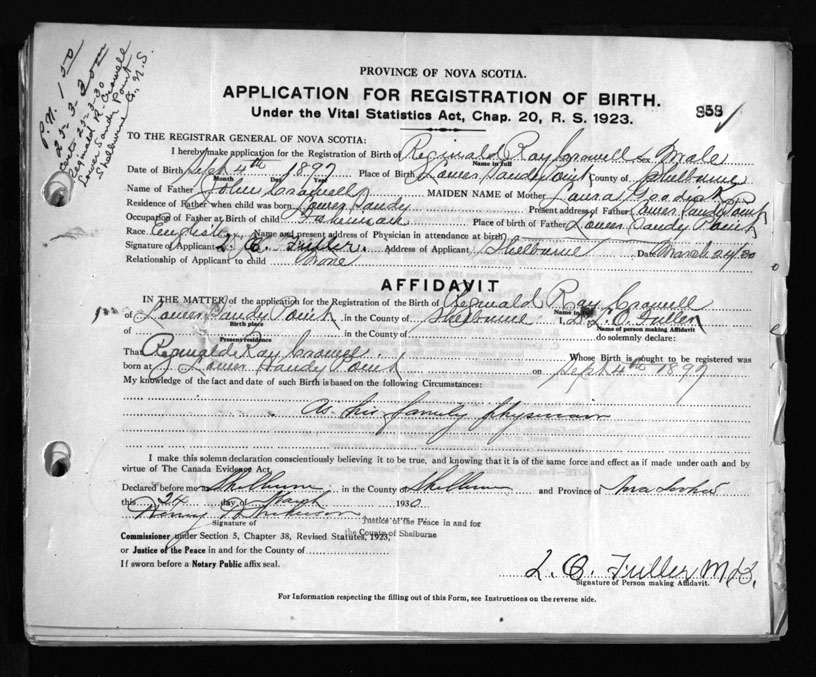 P.N. 1.50
25-3-30
Reginald R. Crowell
Lower Sandy Point
Shelburne Co., N.S.
PROVINCE OF NOVA SCOTIA.
APPLICATION FOR REGISTRATION OF BIRTH.
Under the Vital Statistics Act, Chap. 20, R. S. 1923.
TO THE REGISTRAR GENERAL OF NOVA SCOTIA:
I hereby make application for the Registration of Birth of Reginald Ray Crowell Male
Name in full
Date of Birth Sept 4th 1897 Place of Birth Lower Sandy Point County of Shelburne
Month Day Year
Name of Father John Crowell MAIDEN NAME of Mother Laura
Residence of Father when child was born Lower Sandy Present address of Father Lower Sandy Point
Occupation of Father at Birth of child Fisherman Place of Birth of Father Lower Sandy Point
Race English Name and present address of Physician in attendance at birth
Signature of Applicant L. O. Fuller. Address of Applicant Shelburne Date March 24/30
Relationship of Applicant to child None
AFFIDAVIT
IN THE MATTER of the application for the Registration of the Birth of Reginald Ray Crowell
Name in full
of Lower Sandy Point in the County of Shelburne I, L. O. Fuller
Birth place Name of person making Affidavit
of in the County of do solemnly declare:
Present residence
That Reginald Ray Crowell Whose Birth is sought to be registered was
born at Lower Sandy Point on Sept 4th 1897
My knowledge of the fact and date of such Birth is based on the following Circumstances:
As his family physician
I make this solemn declaration conscientiously believing it to be true, and knowing that it is of the same force and effect as if made under oath and by
virtue of The Canada Evidence Act.
Declared before me Shelburne in the County of Shelburne and Province of Nova Scotia
this 24 day of March 1930
Signature of Justice of the Peace in and for
the County of Shelburne
Commissioner under Section 5, Chapter 38, Revised Statutes, 1923,
or Justice of the Peace in and for the County of
If sworn before a Notary Public affix seal.
L. O. Fuller M.D.
Signature of Person making Affidavit.
For Information respecting the filling out of this Form, see Instructions on the reverse side.